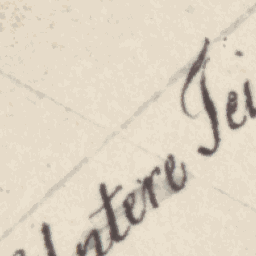 Untere Tei